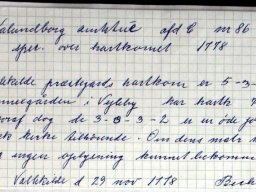 Kalundborg amtstue afd C nr 86
spec. over hartkornet 1778
kilde præstegårds hartkorn er 5-3-
megården i Vejleby har hartk
oraf dog de 3-3-3-2 n er en øde jo
kirke tilhørende. Om dens matr
ingen oplysning kunnet bekomme
Valkilde d 29 nov 1778 Beck